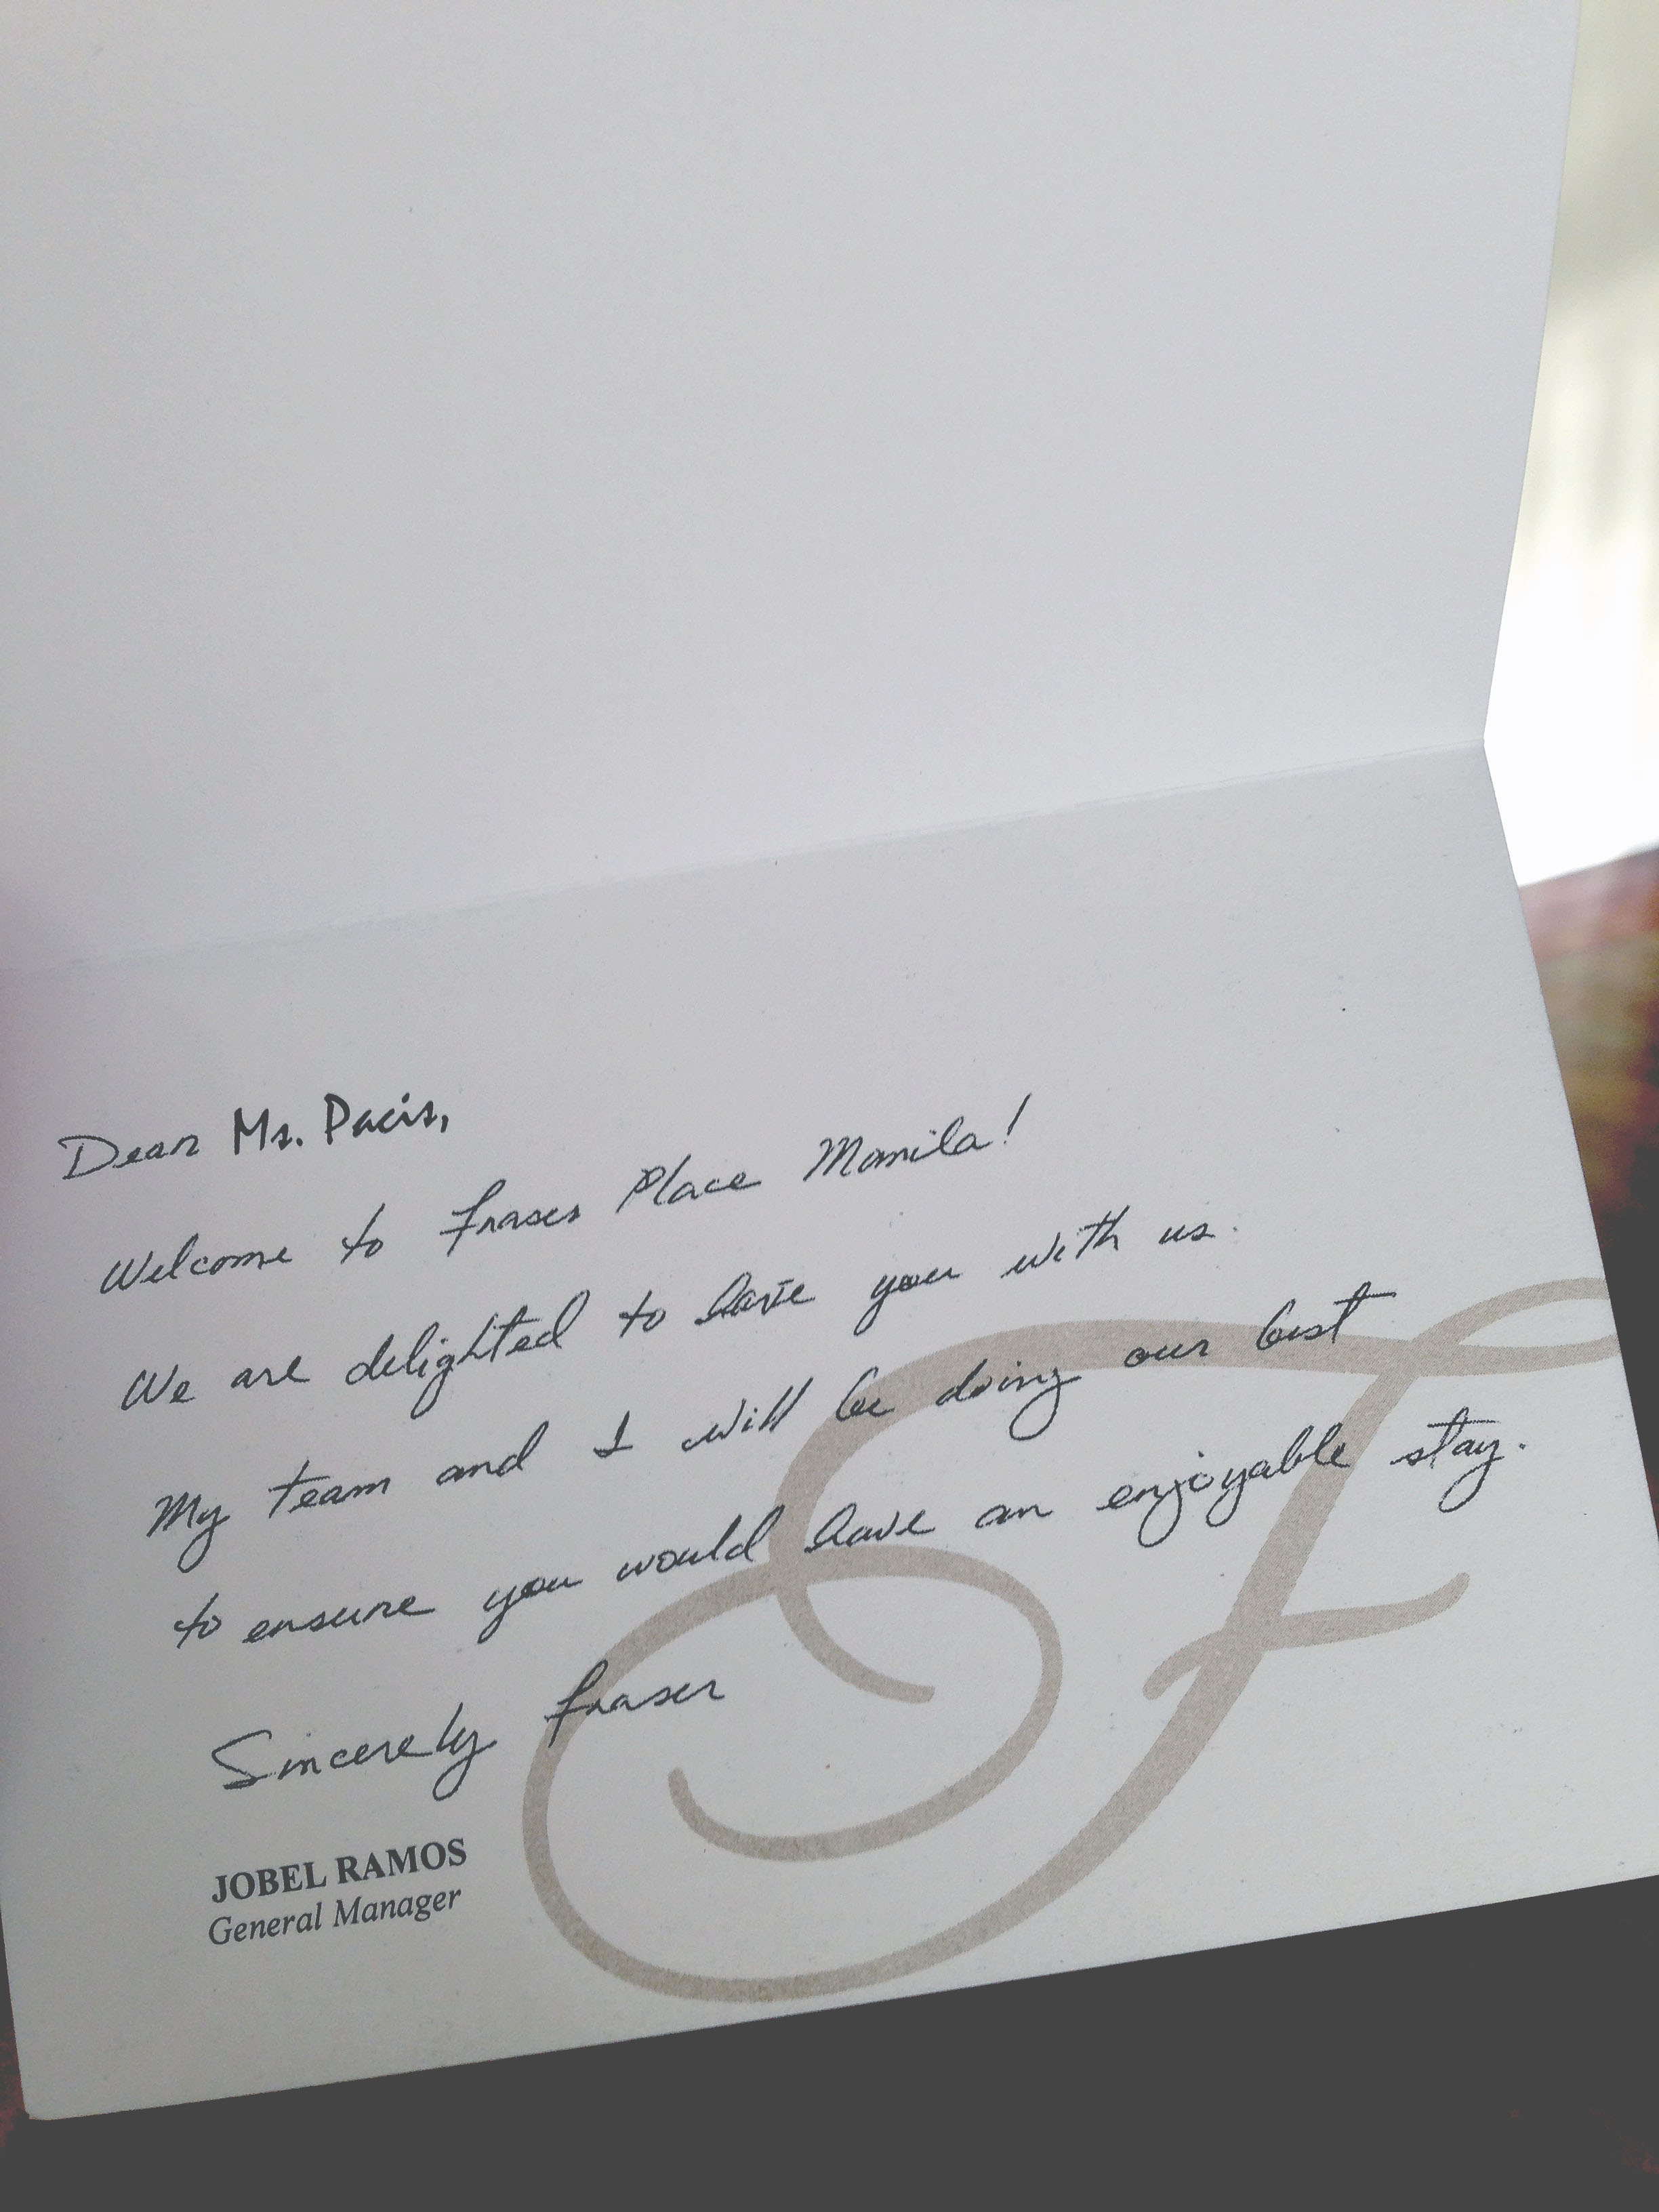 Dear Ms. Pacis,
Welcome to Fraser Place Manila!
We are delighted to have you with us.
My team and I will be doing our best
to ensure you would have an enjoyable stay.
Sincerely Fraser
JOBEL RAMOS
General Manager
F